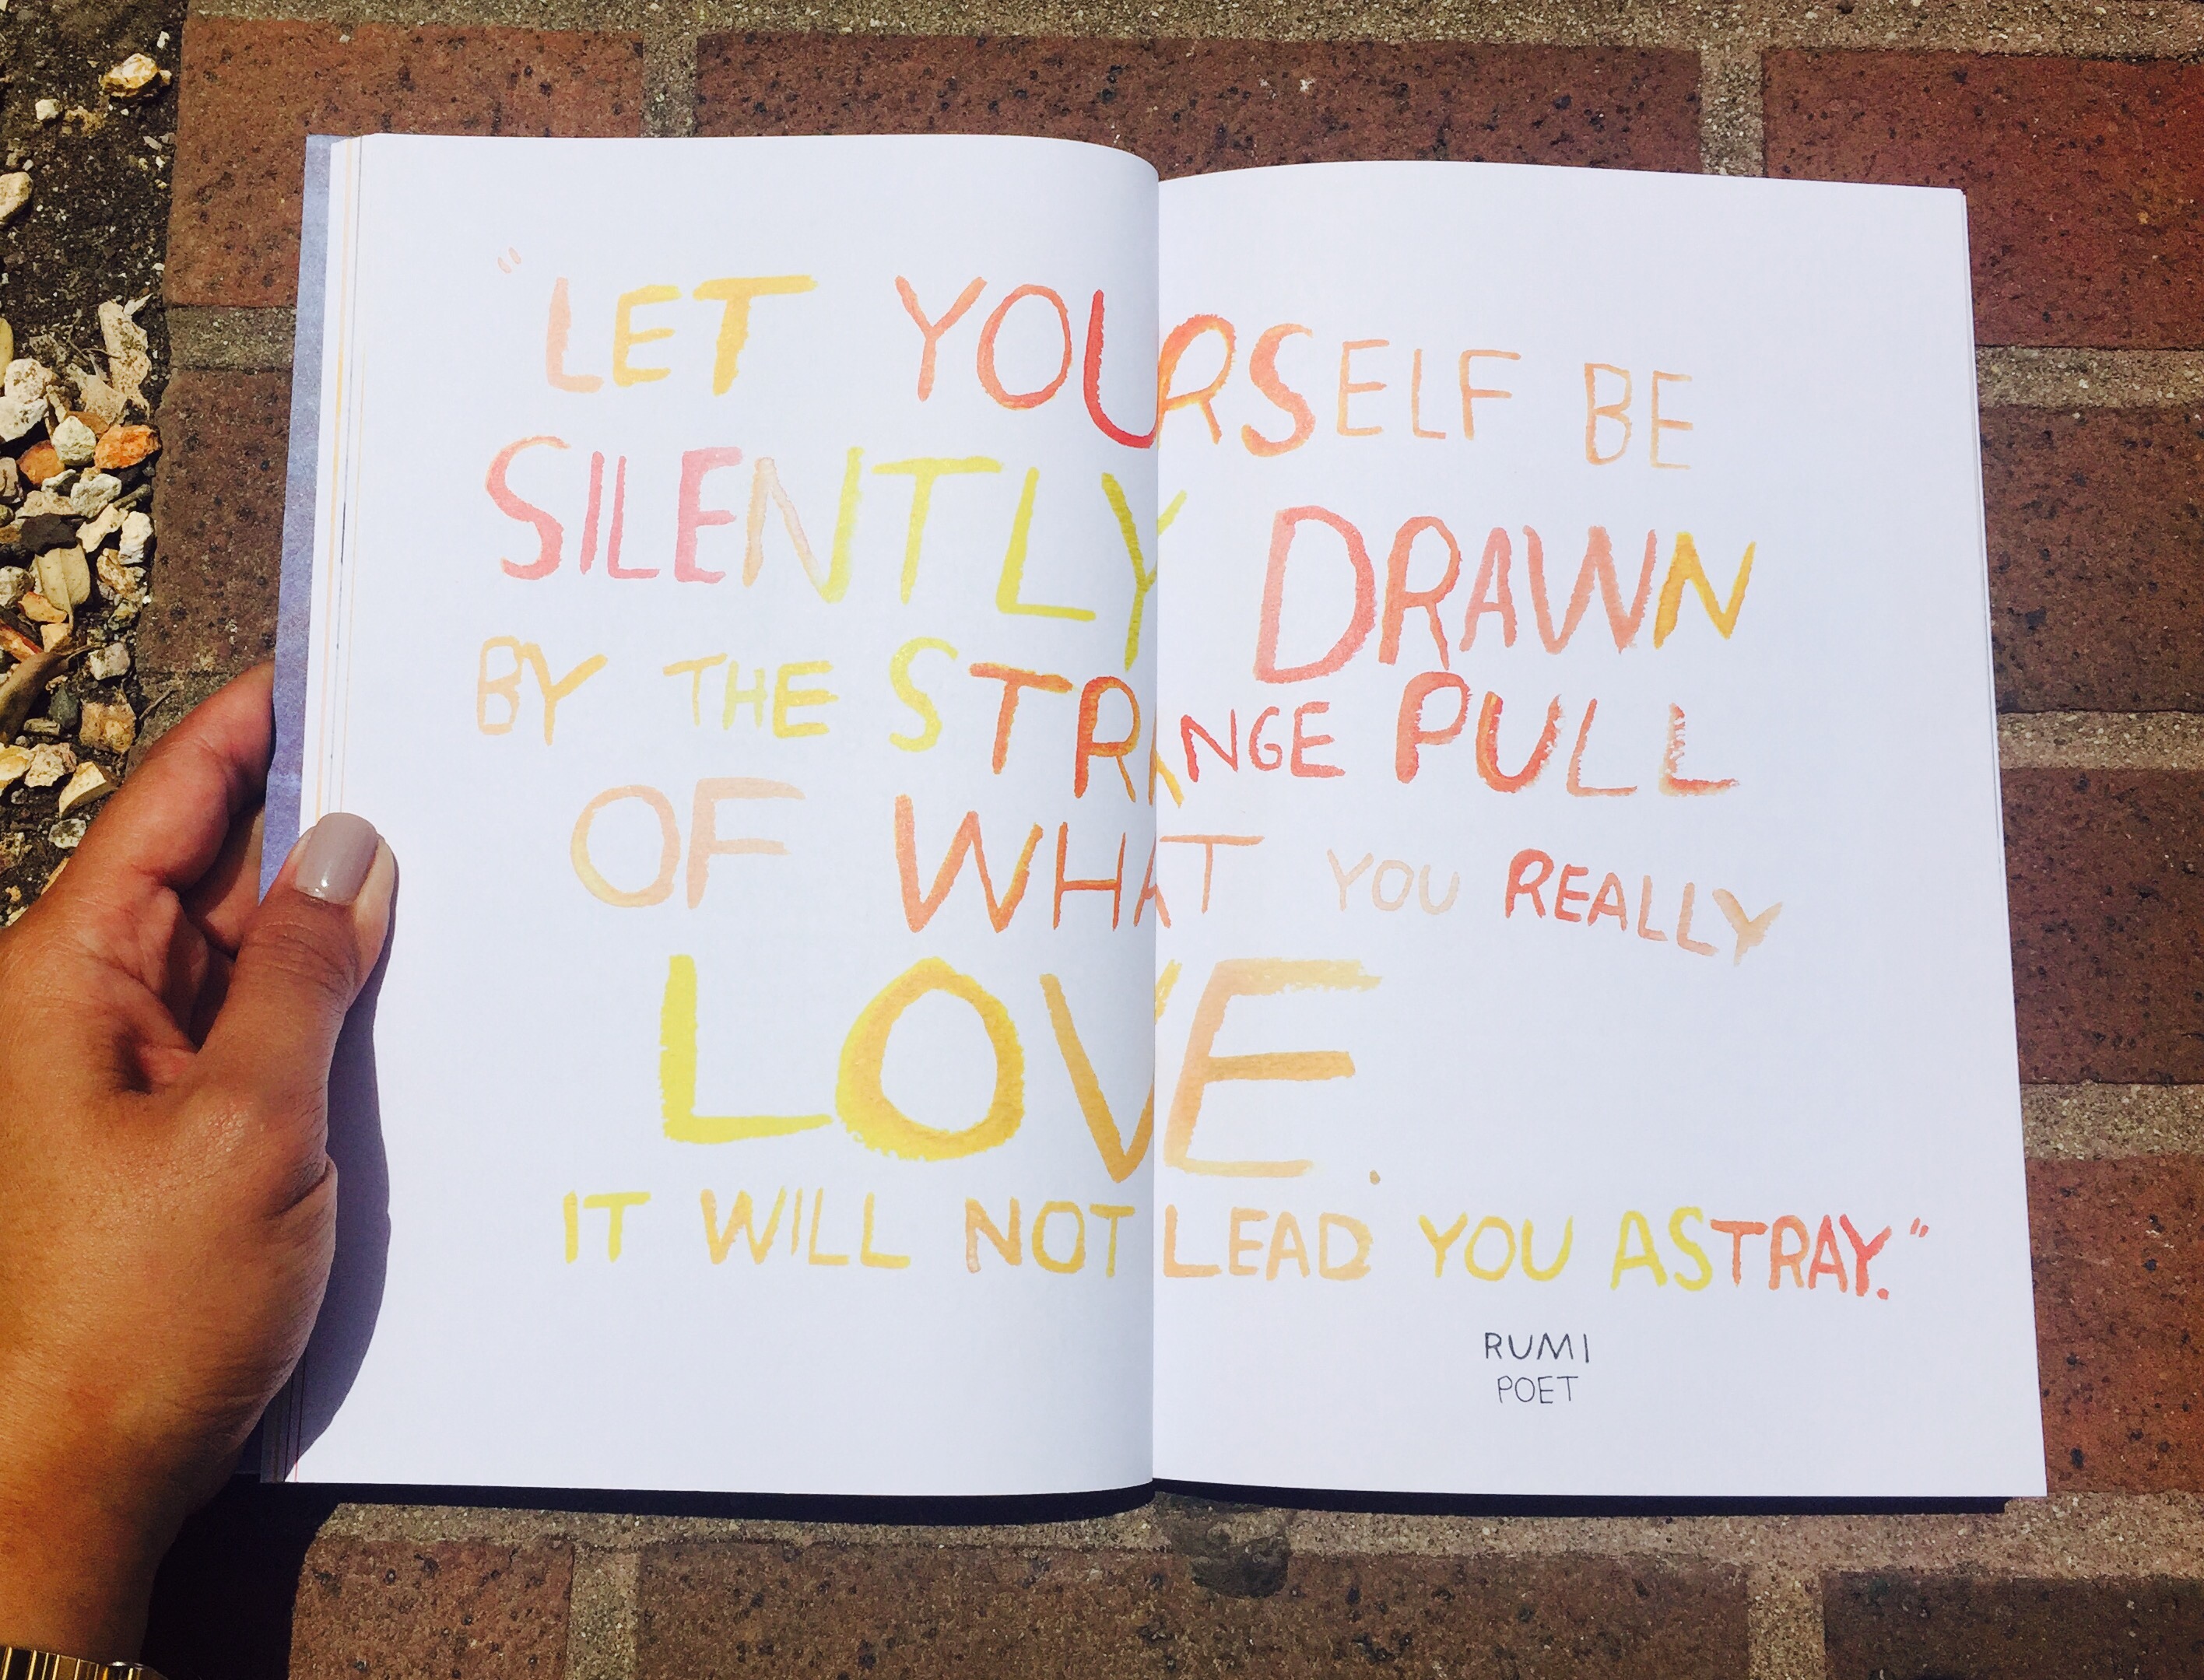 "LET YOURSELF BE
SILENTLY DRAWN
BY THE STRANGE PULL
OF WHAT YOU REALLY
LOVE.
IT WILL NOT LEAD YOU ASTRAY."
RUMI
POET